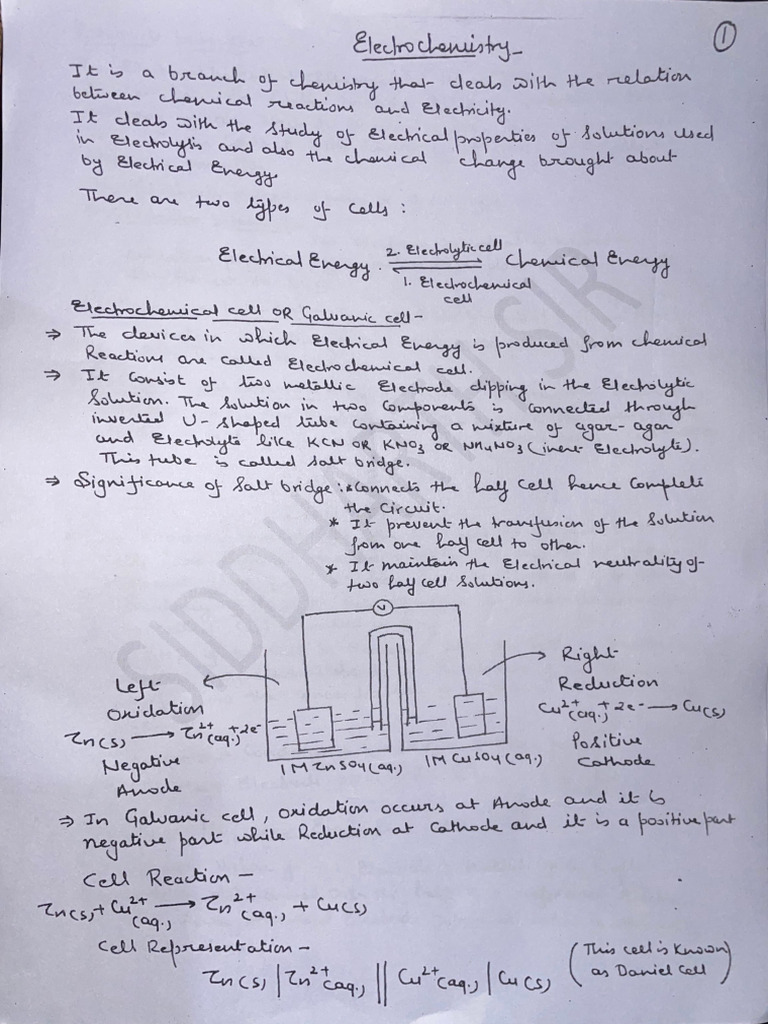 Electrochemistry
1
It is a branch of chemistry that deals with the relation
between chemical reactions and Electricity.
It deals with the study of Electrical properties of Solutions used
in Electrolysis and also the chemical change brought about
by Electrical Energy.
There are two types of cells :
Electrical Energy. 2. Electrolytic cell ⇌ Chemical Energy
1. Electrochemical
cell
Electrochemical cell OR Galvanic cell -
⇒ The devices in which Electrical Energy is produced from chemical
Reactions are called Electrochemical cell.
⇒ It consist of two metallic Electrode dipping in the Electrolytic
Solution. The Solution in two Components is connected through
inverted U-shaped tube containing a mixture of agar-agar
and Electrolyte like KCN OR KNO3 OR NH4NO3 (inert Electrolyte).
This tube is called salt bridge.
⇒ Significance of Salt bridge : * Connects the half cell hence Complete
the Circuit.
* It prevent the transfusion of the Solution
from one half cell to other.
* It maintain the Electrical neutrality of
two half cell Solutions.
V
Left
Oxidation
Zn(s) → Zn²⁺(aq.) + 2e⁻
Negative
Anode
1M ZnSO4 (aq.)
1M CuSO4 (aq.)
Right
Reduction
Cu²⁺(aq.) + 2e⁻ → Cu(s)
Positive
Cathode
⇒ In Galvanic cell, oxidation occurs at Anode and it is
negative part while Reduction at cathode and it is a positive part
Cell Reaction -
Zn(s) + Cu²⁺(aq.) → Zn²⁺(aq.) + Cu(s)
Cell Representation -
Zn(s) | Zn²⁺(aq.) || Cu²⁺(aq.) | Cu(s)
(This cell is known
as Daniel Cell)
SIDDHARTH SIR